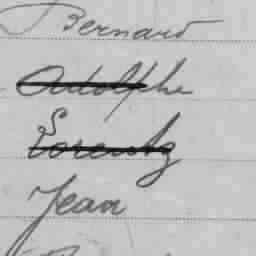 Bernard
Adolphe
Lorentz
Jean